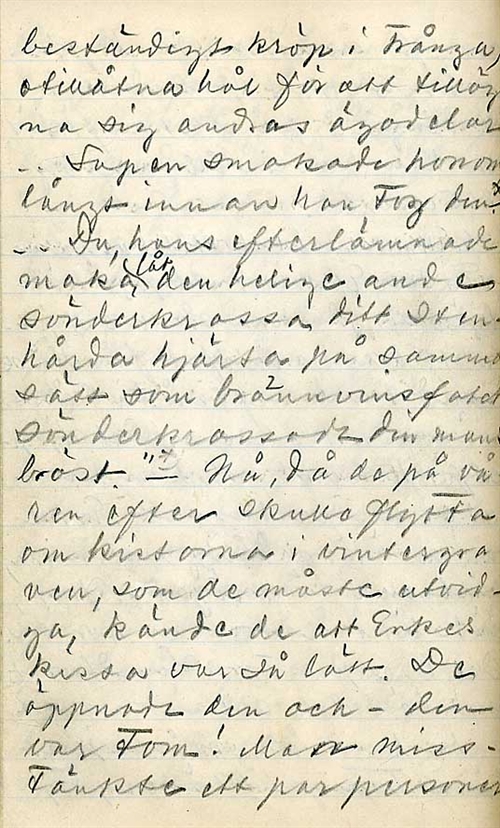 beständigt kröp i trånga,
otillåtna hål för att tilläg
na sig andras ägodelar
-- Supen smakade honom
långt innan han tog den.
-- Du, hans efterlämnade
maka, låt den helige ande
sönderkrossa ditt sten-
hårda hjärta på samma
sätt som brännvinsfatet
sönderkrossade din mans
bröst." — Nå, då de på vå
ren efter skulle flytta
om kistorna i vintergra
ven, som de måste utvid-
ga, kände de att Erkes
kista var så lätt. De
öppnade den och - den
var tom! Man miss-
tänkte ett par personer